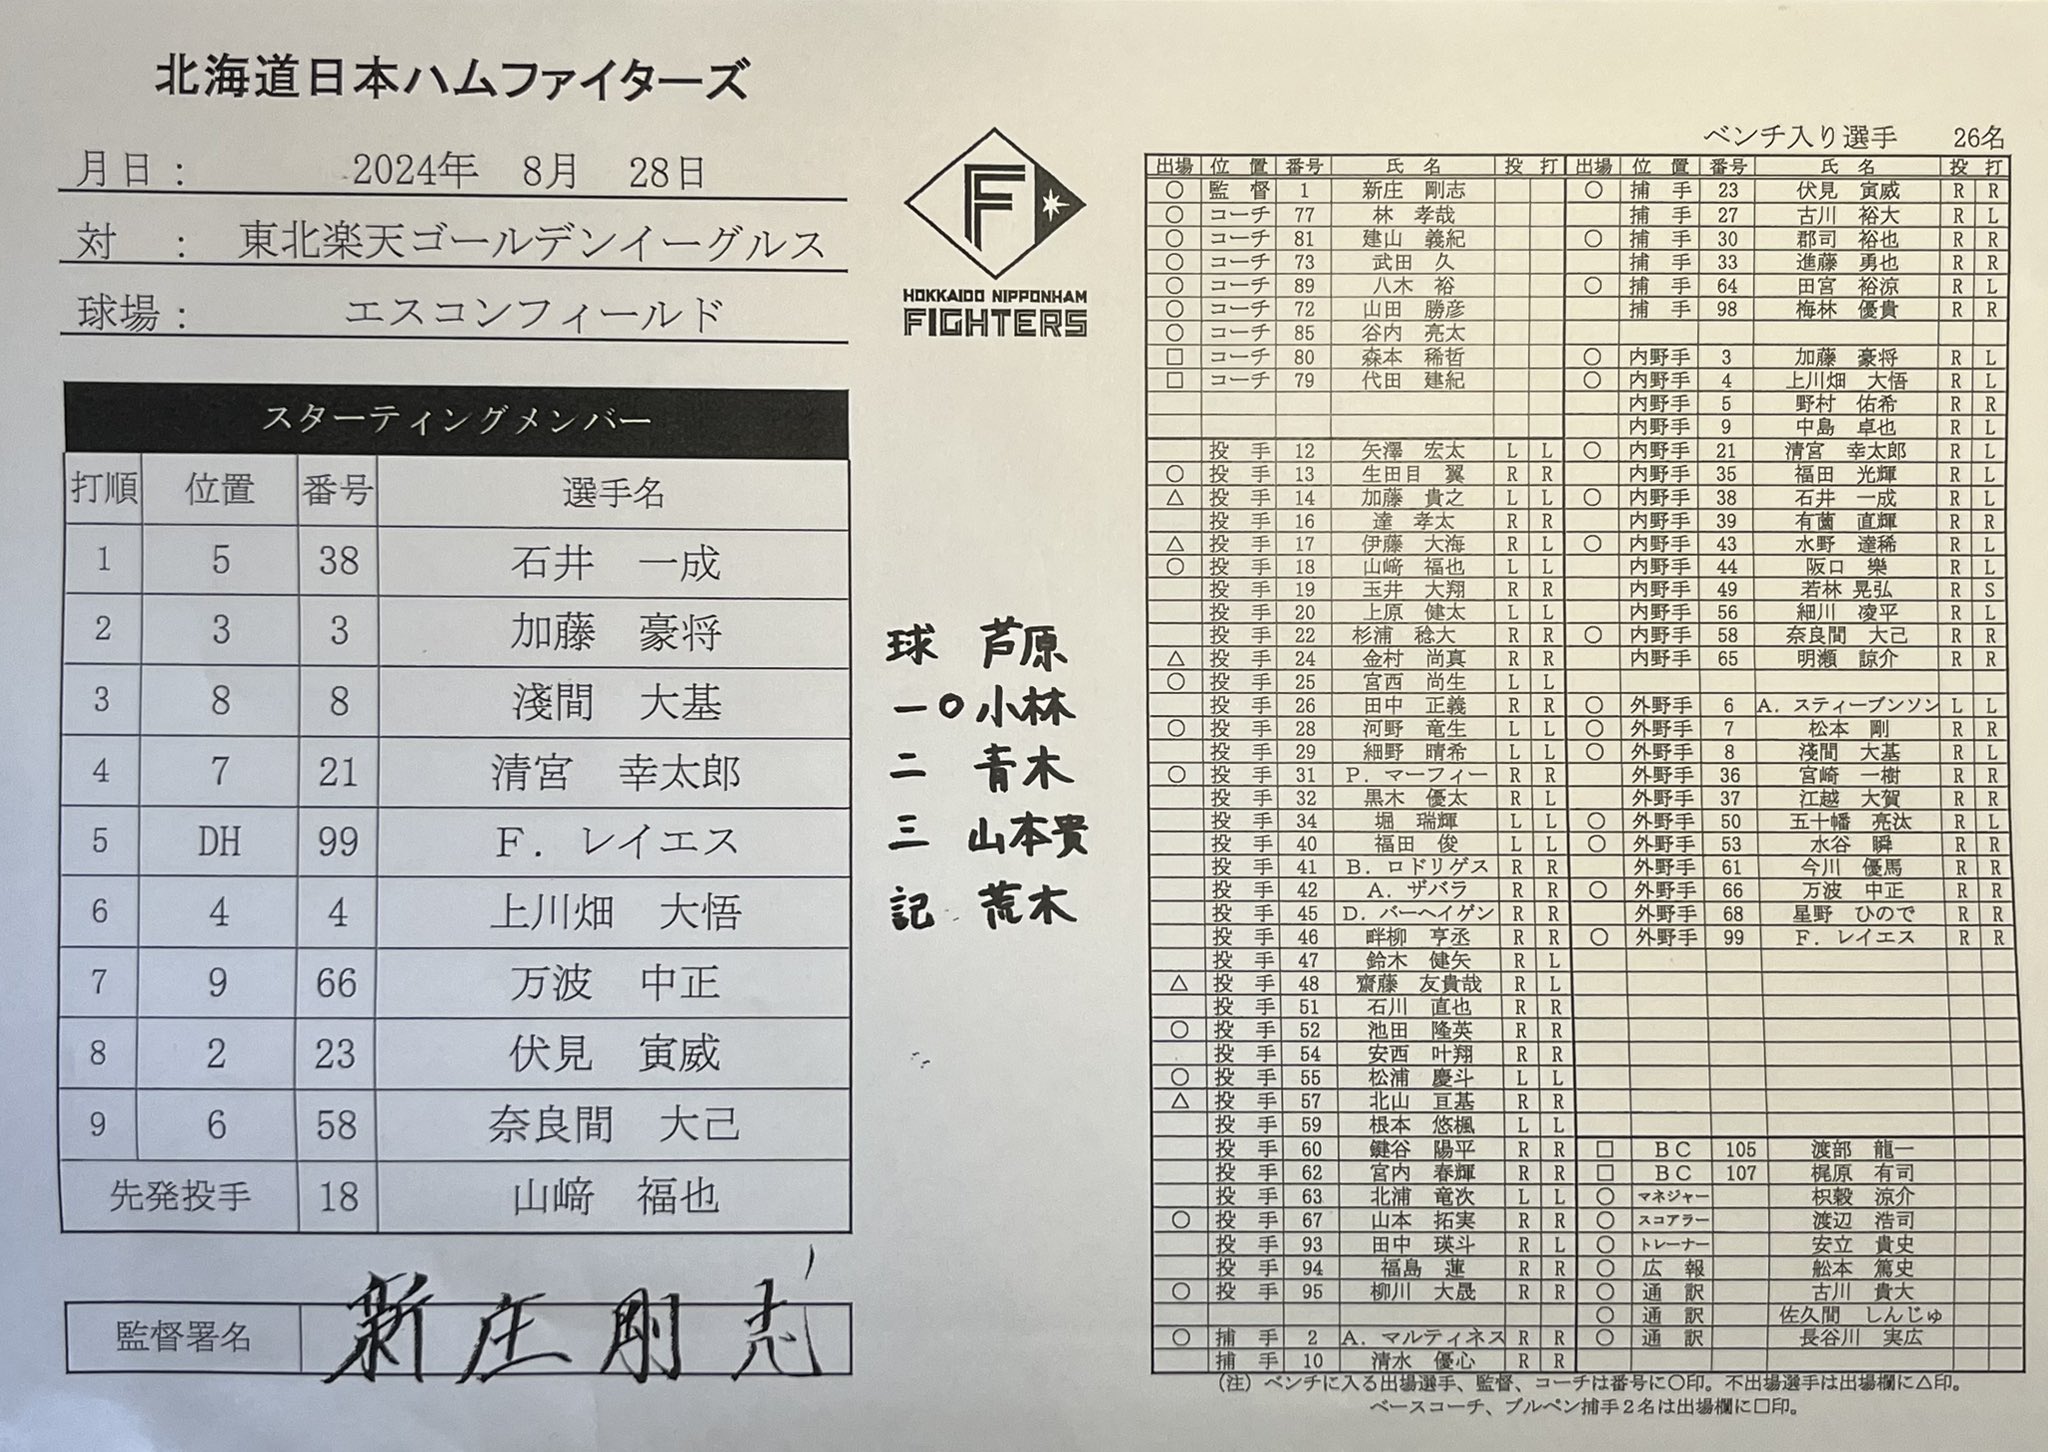 北海道日本ハムファイターズ
月日： 2024年 8月 28日
対 ： 東北楽天ゴールデンイーグルス
球場： エスコンフィールド
F
HOKKAIDO NIPPONHAM
FIGHTERS
スターティングメンバー
打順 位置 番号 選手名
1 5 38 石井 一成
2 3 3 加藤 豪将
3 8 8 淺間 大基
4 7 21 清宮 幸太郎
5 DH 99 F．レイエス
6 4 4 上川畑 大悟
7 9 66 万波 中正
8 2 23 伏見 寅威
9 6 58 奈良間 大己
先発投手 18 山﨑 福也
監督署名 新庄剛志
球 芦原
一〇小林
二 青木
三 山本貴
記 荒木
ベンチ入り選手 26名
出場 位置 番号 氏名 投 打
○ 監督 1 新庄 剛志
○ コーチ 77 林 孝哉
○ コーチ 81 建山 義紀
○ コーチ 73 武田 久
○ コーチ 89 八木 裕
○ コーチ 72 山田 勝彦
○ コーチ 85 谷内 亮太
□ コーチ 80 森本 稀哲
□ コーチ 79 代田 建紀
投手 12 矢澤 宏太 L L
○ 投手 13 生田目 翼 R R
△ 投手 14 加藤 貴之 L L
投手 16 達 孝太 R R
△ 投手 17 伊藤 大海 R L
○ 投手 18 山﨑 福也 L L
投手 19 玉井 大翔 R R
投手 20 上原 健太 L L
投手 22 杉浦 稔大 R R
△ 投手 24 金村 尚真 R R
○ 投手 25 宮西 尚生 L L
投手 26 田中 正義 R R
○ 投手 28 河野 竜生 L L
投手 29 細野 晴希 L L
○ 投手 31 P．マーフィー R R
投手 32 黒木 優太 R L
投手 34 堀 瑞輝 L L
投手 40 福田 俊 L L
投手 41 B．ロドリゲス R R
投手 42 A．ザバラ R R
投手 45 D．バーヘイゲン R R
投手 46 畔柳 亨丞 R R
投手 47 鈴木 健矢 R L
△ 投手 48 齋藤 友貴哉 R L
投手 51 石川 直也 R R
○ 投手 52 池田 隆英 R R
投手 54 安西 叶翔 R R
○ 投手 55 松浦 慶斗 L L
△ 投手 57 北山 亘基 R R
投手 59 根本 悠楓 L L
投手 60 鍵谷 陽平 R R
投手 62 宮内 春輝 R R
投手 63 北浦 竜次 L L
○ 投手 67 山本 拓実 R R
投手 93 田中 瑛斗 R L
投手 94 福島 蓮 R R
○ 投手 95 柳川 大晟 R R
○ 捕手 2 A．マルティネス R R
捕手 10 清水 優心 R R
出場 位置 番号 氏名 投 打
○ 捕手 23 伏見 寅威 R R
捕手 27 古川 裕大 R L
○ 捕手 30 郡司 裕也 R R
捕手 33 進藤 勇也 R R
○ 捕手 64 田宮 裕涼 R L
捕手 98 梅林 優貴 R R
○ 内野手 3 加藤 豪将 R L
○ 内野手 4 上川畑 大悟 R L
内野手 5 野村 佑希 R R
内野手 9 中島 卓也 R L
○ 内野手 21 清宮 幸太郎 R L
内野手 35 福田 光輝 R L
○ 内野手 38 石井 一成 R L
内野手 39 有薗 直輝 R R
○ 内野手 43 水野 達稀 R L
内野手 44 阪口 樂 R L
内野手 49 若林 晃弘 R S
内野手 56 細川 凌平 R L
○ 内野手 58 奈良間 大己 R R
内野手 65 明瀬 諒介 R R
○ 外野手 6 A．スティーブンソン L L
○ 外野手 7 松本 剛 R R
○ 外野手 8 淺間 大基 R L
外野手 36 宮崎 一樹 R R
外野手 37 江越 大賀 R R
○ 外野手 50 五十幡 亮汰 R L
○ 外野手 53 水谷 瞬 R R
外野手 61 今川 優馬 R R
○ 外野手 66 万波 中正 R R
外野手 68 星野 ひので R R
○ 外野手 99 F．レイエス R R
□ BC 105 渡部 龍一
□ BC 107 梶原 有司
○ マネジャー 枳穀 涼介
○ スコアラー 渡辺 浩司
○ トレーナー 安立 貴史
○ 広報 舩本 篤史
○ 通訳 古川 貴大
○ 通訳 佐久間 しんじゅ
○ 通訳 長谷川 実広
（注）ベンチに入る出場選手、監督、コーチは番号に○印。不出場選手は出場欄に△印。
ベースコーチ、ブルペン捕手２名は出場欄に□印。